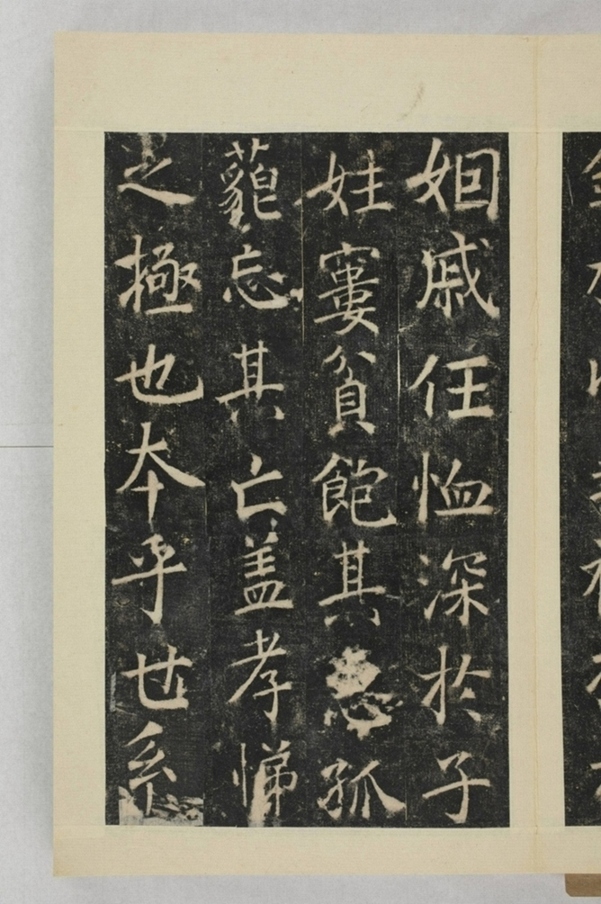 姻戚任恤深於子
姓窶貧飽其孤
藐忘其亡盖孝悌
之極也本乎世系